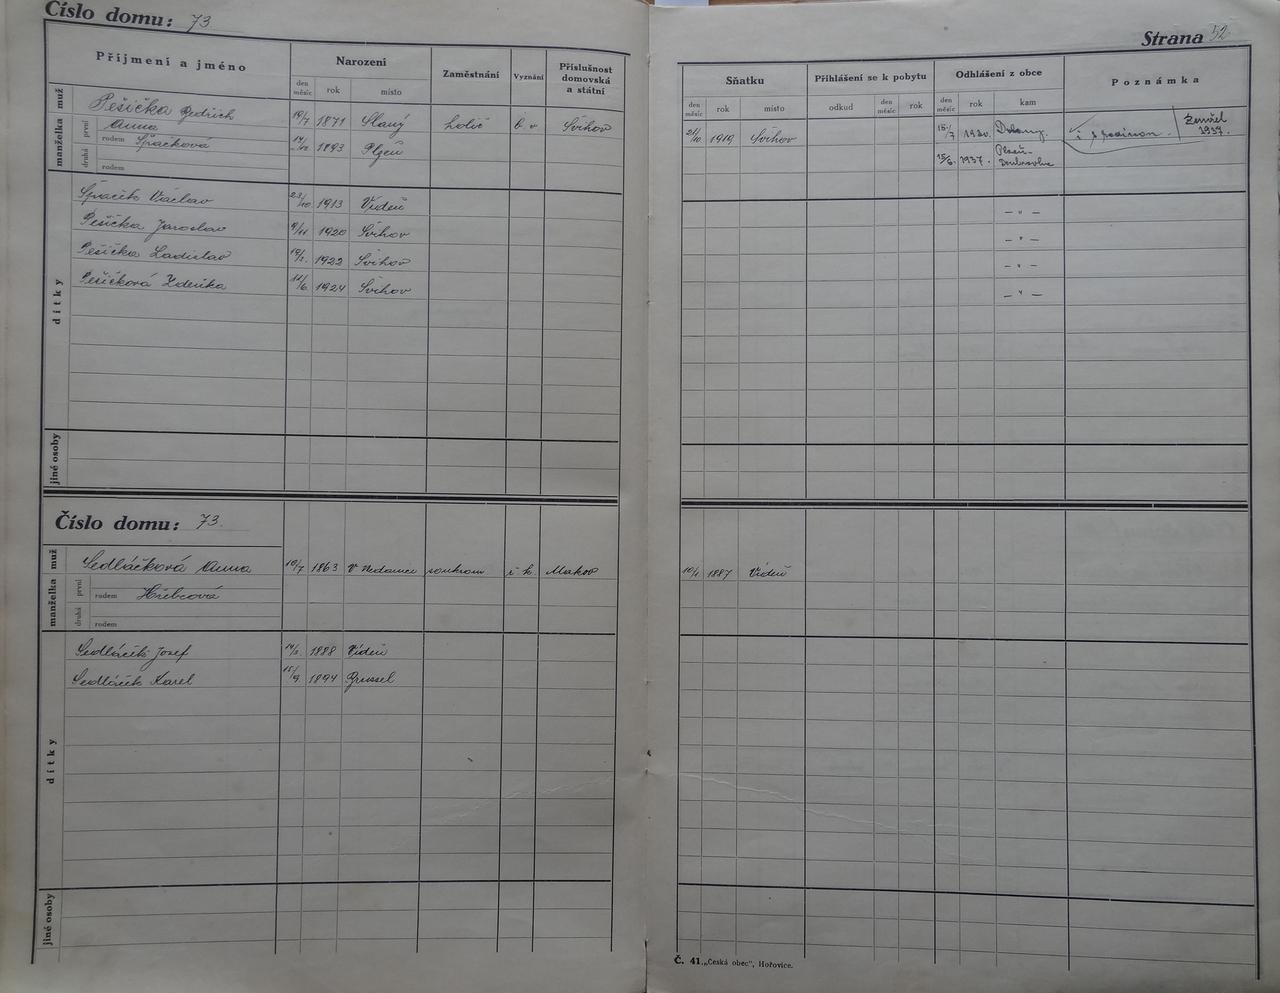 Číslo domu: 73
Strana 52
Příjmení a jméno
Narození
Zaměstnání
Vyznání
Příslušnost domovská a státní
den měsíc
rok
místo
Sňatku
Přihlášení se k pobytu
Odhlášení z obce
Poznámka
den měsíc
rok
místo
odkud
den měsíc
rok
den měsíc
rok
kam
muž
Pešička Bedřich 19/7 1871 Slaný holič b v Švihov 21/10 1919 Švihov 15/7 1920. Dolany. Zemřel 1937.
manželka
první
Anna
rodem Špačková 1893 Plzeň 15/6. 1937. Plzeň-Doubravka
druhá
rodem
dítky
Špaček Václav 23/10 1913 Vídeň — " —
Pešička Jaroslav 9/11 1920 Švihov — " —
Pešička Ladislav 1922 Švihov — " —
Pešičková Zdeňka 1924 Švihov — " —
jiné osoby
Číslo domu: 73.
muž
Sedláčková Anna 10/7 1863 soukrom ř. k. Makov 1887 Vídeň
manželka
první
rodem
druhá
rodem
dítky
Sedláček Josef 1888 Vídeň
Sedláček Karel 15/9. 1894 Brussel
jiné osoby
Č. 41. „Česká obec", Hořovice.